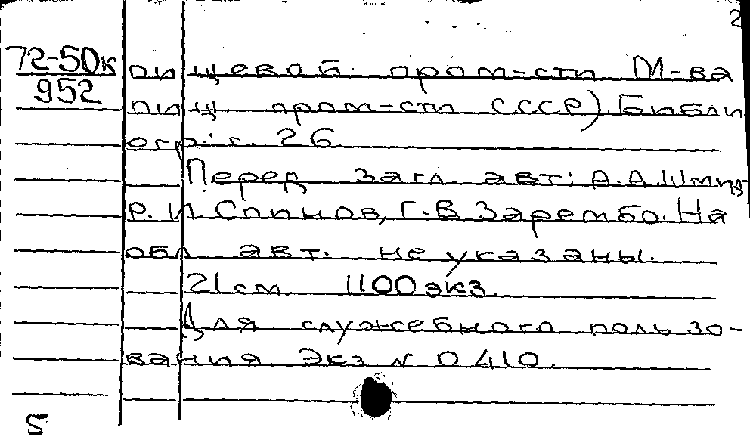 2
72-50к
952
пищевой пром-сти М-ва
пищ пром-сти СССР) Библи
огр: с. 26
Перед загл авт: А.А.Шмидт
Р. И. Спинов, Г.В Зарембо. На
обл авт. не указаны.
21 см 1100 экз.
Для служебного пользо-
вания Экз N 0410.
5